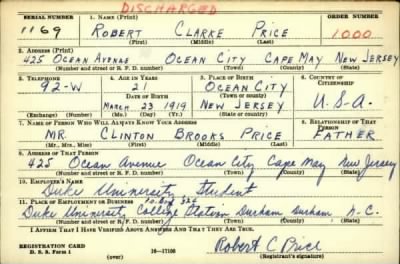 DISCHARGED
SERIAL NUMBER 1. NAME (Print) ORDER NUMBER
1169 ROBERT CLARKE PRICE 1000
(First) (Middle) (Last)
2. ADDRESS (Print)
425 OCEAN AVENUE OCEAN CITY CAPE MAY NEW JERSEY
(Number and street or R. F. D. number) (Town) (County) (State)
3. TELEPHONE 4. AGE IN YEARS 5. PLACE OF BIRTH 6. COUNTRY OF CITIZENSHIP
92-W 21 OCEAN CITY
DATE OF BIRTH (Town or county)
MARCH 23 1919 NEW JERSEY U.S.A.
(Exchange) (Number) (Mo.) (Day) (Yr.) (State or country)
7. NAME OF PERSON WHO WILL ALWAYS KNOW YOUR ADDRESS 8. RELATIONSHIP OF THAT PERSON
MR. CLINTON BROOKS PRICE FATHER
(Mr., Mrs., Miss) (First) (Middle) (Last)
9. ADDRESS OF THAT PERSON
425 Ocean Avenue Ocean City Cape May New Jersey
(Number and street or R. F. D. number) (Town) (County) (State)
10. EMPLOYER'S NAME
Duke University Student
11. PLACE OF EMPLOYMENT OR BUSINESS
Duke University College Station Durham Durham N-C.
(Number and street or R. F. D. number) (Town) (County) (State)
I AFFIRM THAT I HAVE VERIFIED ABOVE ANSWERS AND THAT THEY ARE TRUE.
REGISTRATION CARD
D. S. S. Form 1 (over) 16-17105 Robert C Price
(Registrant's signature)